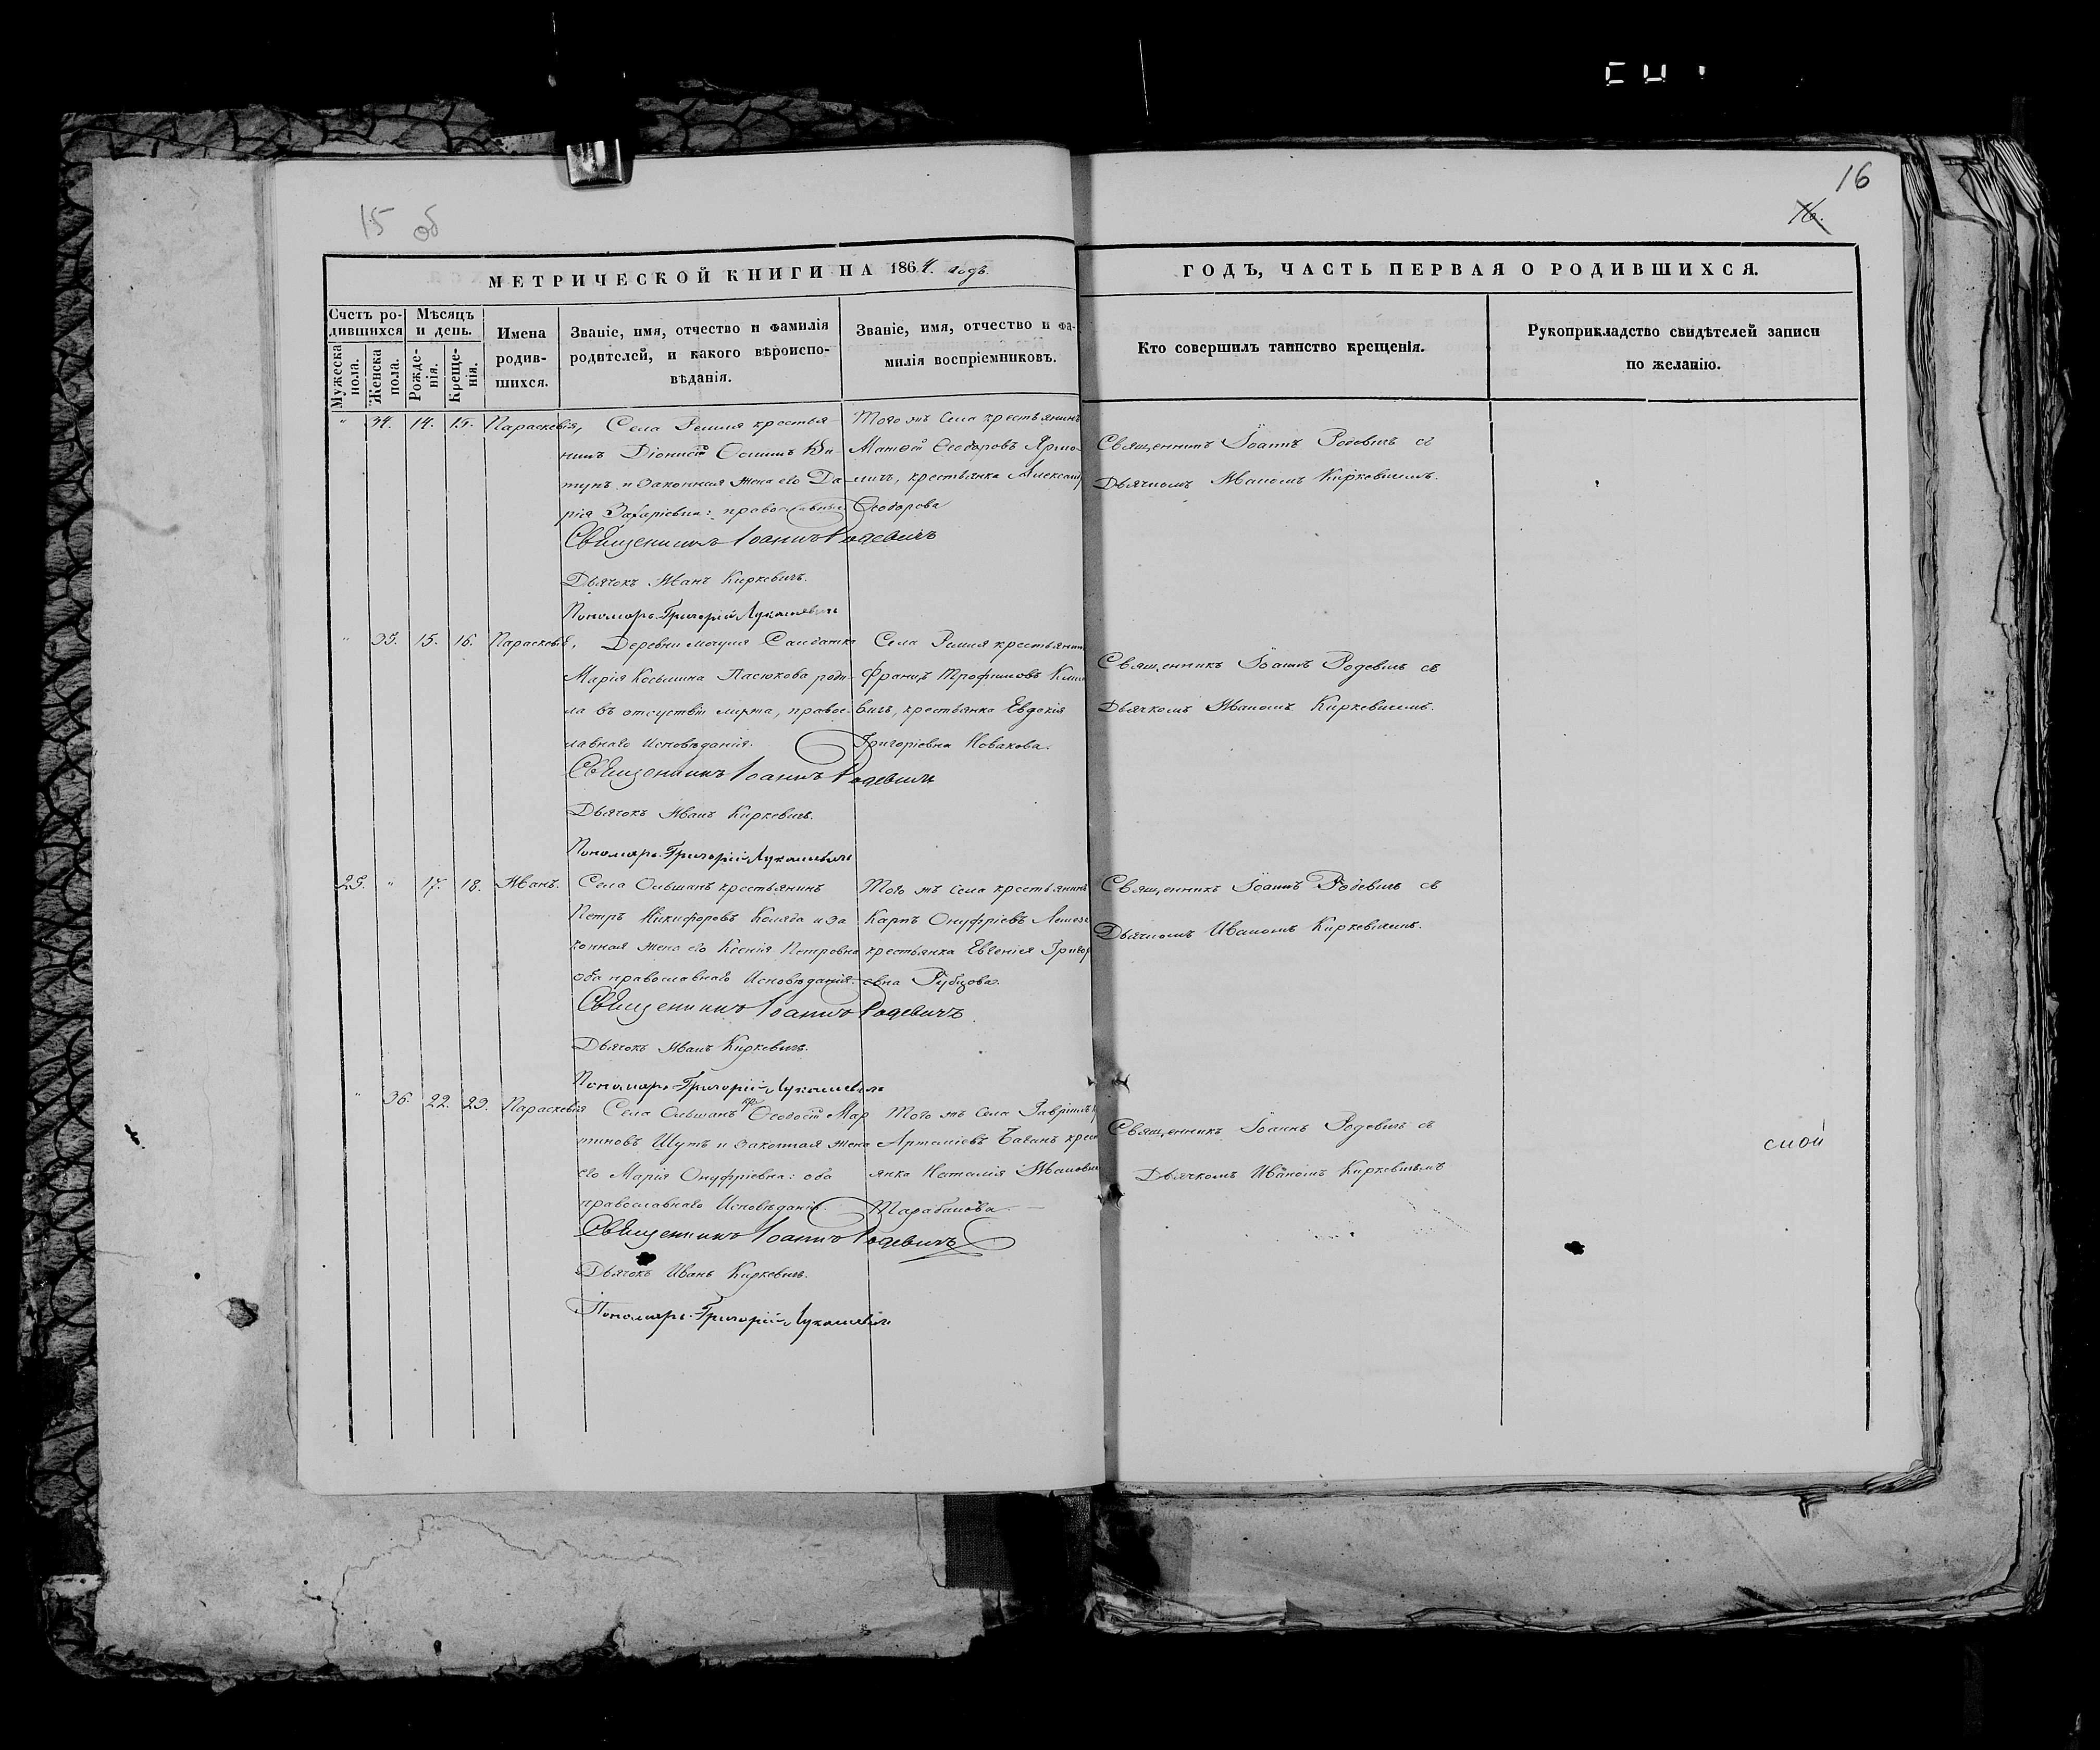 15 об
16
16.
МЕТРИЧЕСКОЙ КНИГИ НА 1864. годъ.
ГОДЪ, ЧАСТЬ ПЕРВАЯ О РОДИВШИХСЯ.
Счетъ ро-
дившихся
Мужеска пола.
Женска пола.
Мѣсяцъ
и день.
Рожде-
нія.
Креще-
нія.
Имена
родив-
шихся.
Званіе, имя, отчество и фамилія
родителей, и какого вѣроиспо-
вѣданія.
Званіе, имя, отчество и фа-
милія воспріемниковъ.
Кто совершилъ таинство крещенія.
Рукоприкладство свидѣтелей записи
по желанію.
" 34. 14. 15. Параскевія,
Села крестья-
нинъ Діонисій
и законная жена его Да-
рія Захаріевна: православныя
Священникъ Іоаннъ Родевичъ
Дьячокъ Иванъ Киркевичъ.
Пономарь Григорій Лукашевичъ
Того жъ села крестьянинъ
Матѳей Ѳеодоровъ
крестьянка
Ѳеодорова
Священникъ Іоаннъ Родевичъ съ
Дьячкомъ Иваномъ Киркевичемъ.
" 35. 15. 16. Параскевія,
Деревни Солдатка
Марія Косьмина Пасюкова роди-
ла въ отсутствіи мужа, правос-
лавнаго исповѣданія.
Священникъ Іоаннъ Родевичъ
Дьячокъ Иванъ Киркевичъ.
Пономарь Григорій Лукашевичъ
Села крестьянинъ
Францъ Трофимовъ
крестьянка Евдокія
Григоріевна Новакова.
Священникъ Іоаннъ Родевичъ съ
Дьячкомъ Иваномъ Киркевичемъ.
25. " 17. 18. Иванъ.
Села Ольшанъ крестьянинъ
Петръ Никифоровъ Коляда и за
конная жена его Ксенія Петровна
оба православнаго исповѣданія.
Священникъ Іоаннъ Родевичъ
Дьячокъ Иванъ Киркевичъ.
Пономарь Григорій Лукашевичъ
Того жъ села крестьянинъ
Карпъ Онуфріевъ
крестьянка Евгенія Григор
евна Рубцова.
Священникъ Іоаннъ Родевичъ съ
Дьячкомъ Иваномъ Киркевичемъ.
" 36. 22. 23. Параскевія
Села Ольшанъ кр. Ѳеодосій Мар
тиновъ Шутъ и законная жена
его Марія Онуфріевна: оба
православнаго исповѣданія.
Священникъ Іоаннъ Родевичъ
Дьячокъ Иванъ Киркевичъ.
Пономарь Григорій Лукашевичъ
Того жъ села Гавріилъ
Артеміевъ крест
янка Наталія Ивановна
Тарабанова.
Священникъ Іоаннъ Родевичъ съ
Дьячкомъ Иваномъ Киркевичемъ